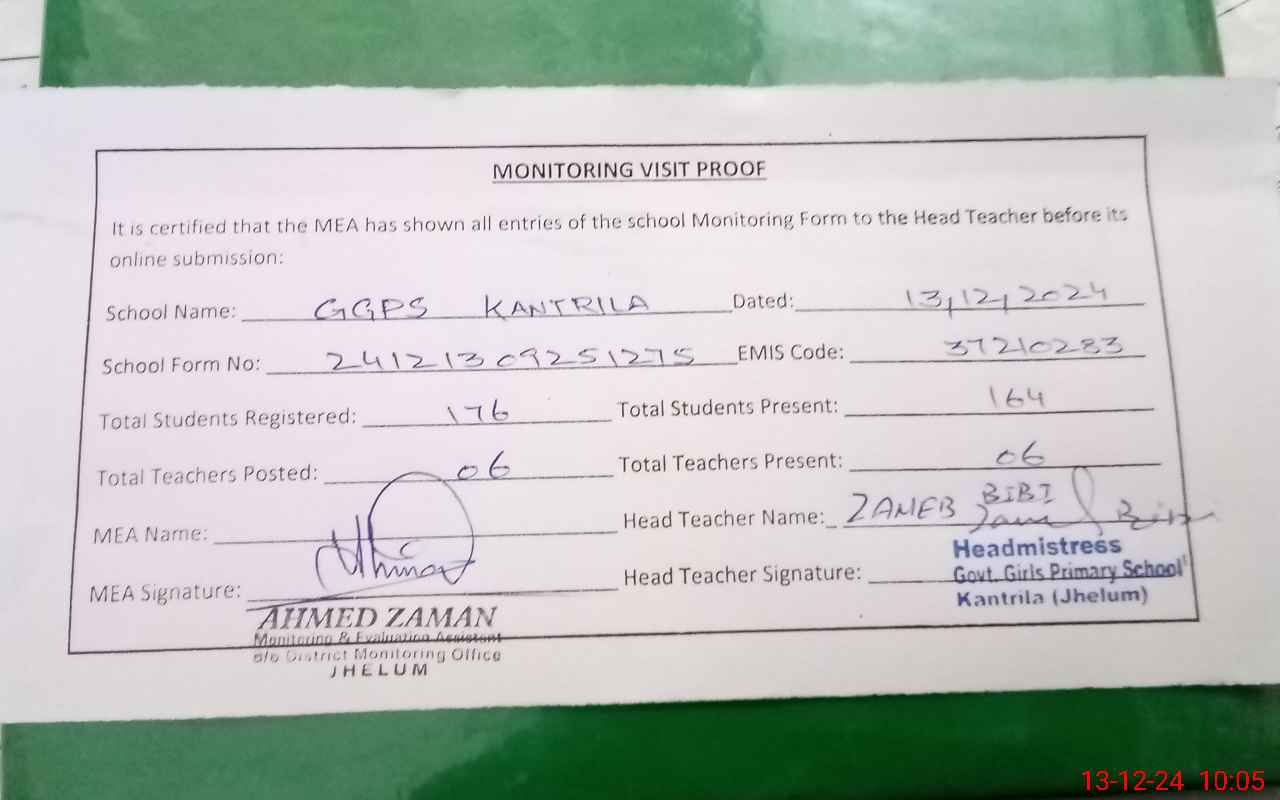 MONITORING VISIT PROOF
It is certified that the MEA has shown all entries of the school Monitoring Form to the Head Teacher before its
online submission:
School Name: GGPS KANTRILA Dated: 13,12,2024
School Form No: 24121309251275 EMIS Code: 37210283
Total Students Registered: 176 Total Students Present: 164
Total Teachers Posted: 06 Total Teachers Present: 06
MEA Name: Head Teacher Name: ZANEB BIBI
MEA Signature: Head Teacher Signature:
Headmistress
Govt. Girls Primary School
Kantrila (Jhelum)
AHMED ZAMAN
Monitoring & Evaluation Assistant
o/o District Monitoring Office
JHELUM
13-12-24 10:05